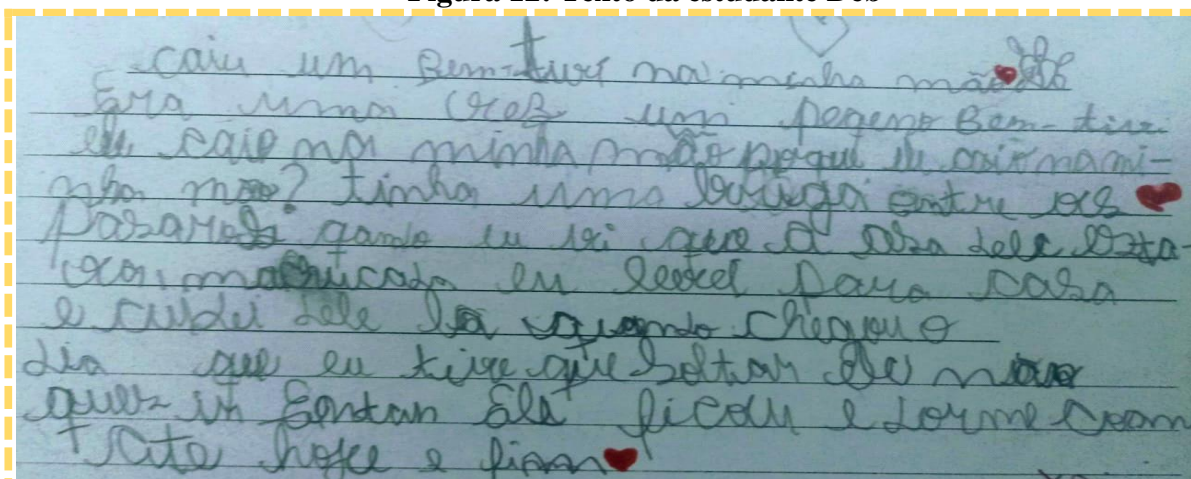 Figura 12: Texto da estudante D08
caiu um Bem-tivi na minha mão
Era uma vez um pegeno Bem-tivi
ele caio na minha mão porqui ele caio na mi-
nha mão? tinha uma briga entre os
pasaros gando eu vi que a asa dele esta-
va machucada eu levei para casa
e cuidei dele la quando chegou o
dia que eu tive que soltar ele não
quez ir Eentan Ele ficou e dorme com
ate hoje e fim